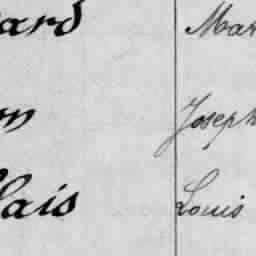 ard Mar
on Joseph
lais Louis